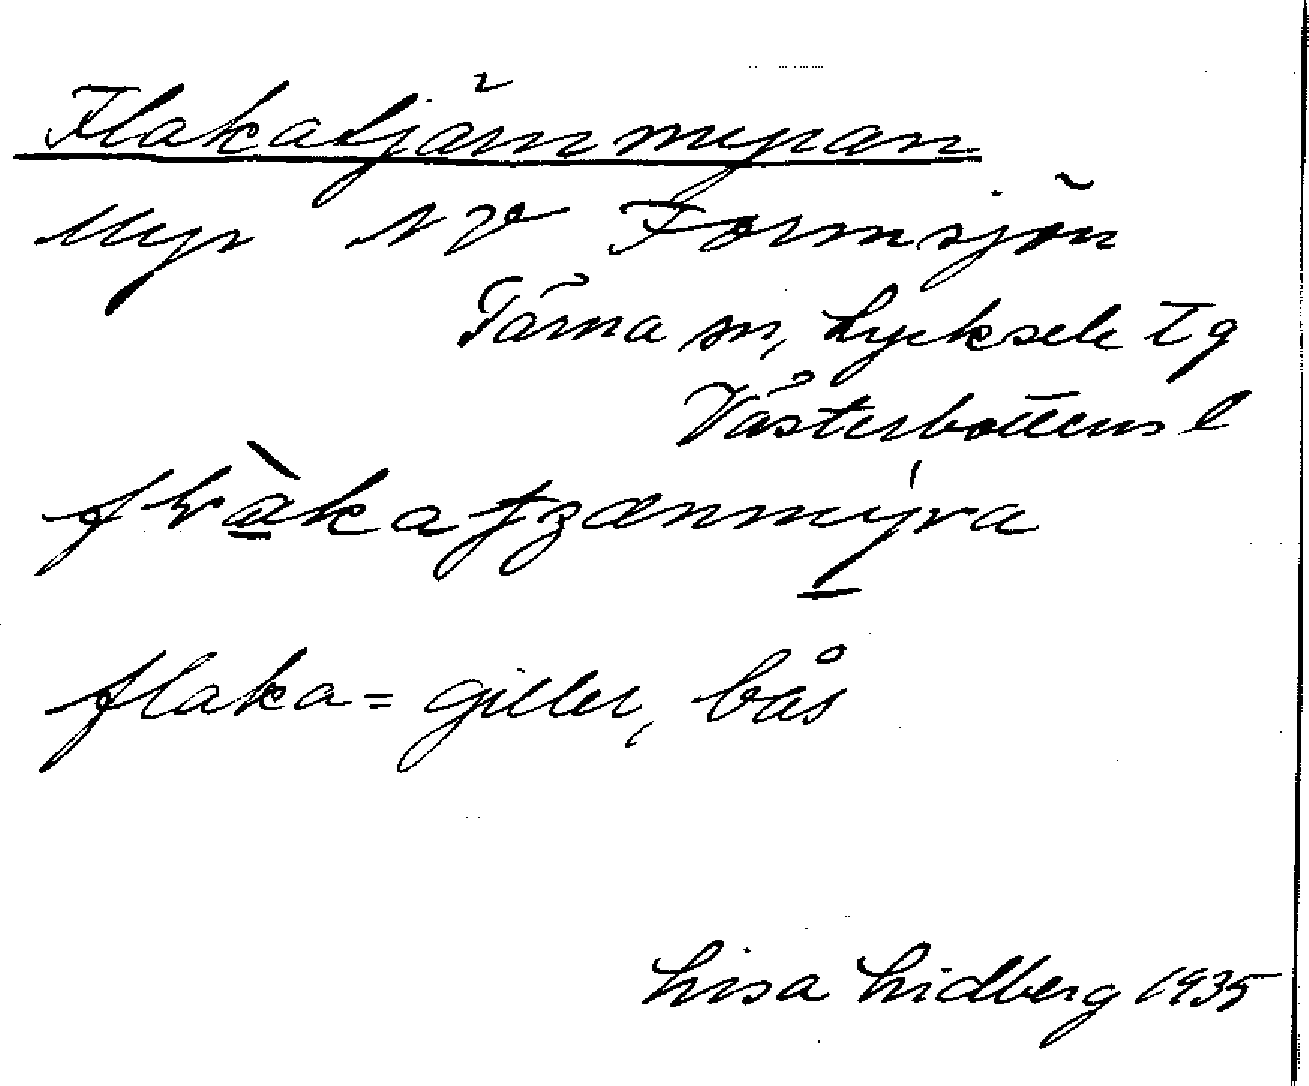 Flakatjärnmyran
Myr NV Formsjön
Tärna sn, Lycksele tg
Västerbottens l
flakatjzænmy̱ra
flaka = giller, bås
Lisa Lidberg 1935